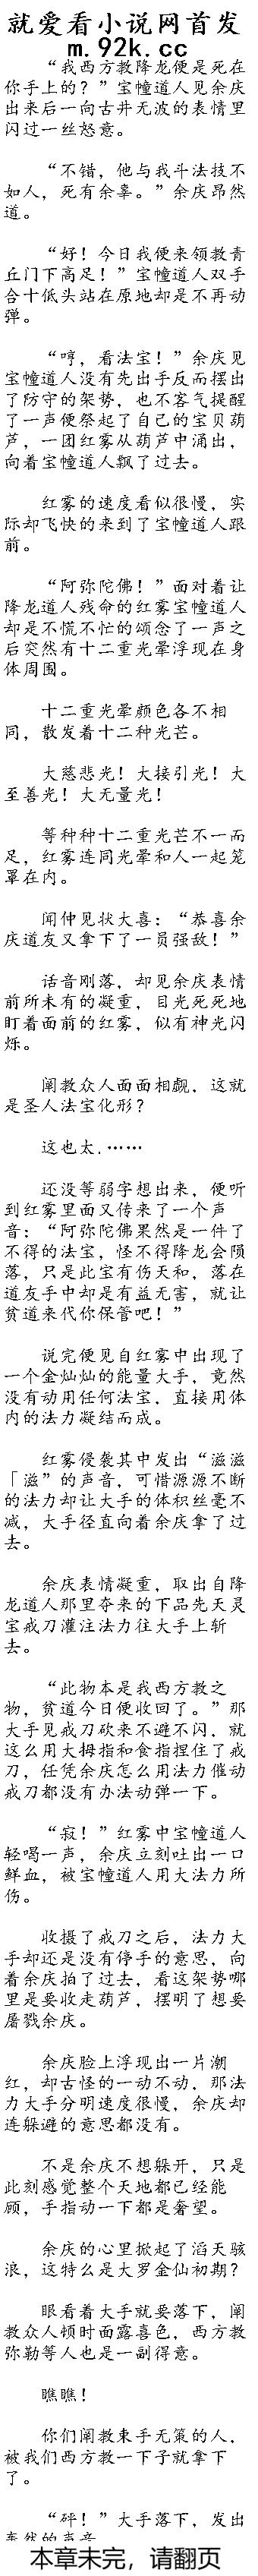 就爱看小说网首发
m.92k.cc
“我西方教降龙便是死在
你手上的？”宝幢道人见余庆
出来后一向古井无波的表情里
闪过一丝怒意。
“不错，他与我斗法技不
如人，死有余辜。”余庆昂然
道。
“好！今日我便来领教青
丘门下高足！”宝幢道人双手
合十低头站在原地却是不再动
弹。
“哼，看法宝！”余庆见
宝幢道人没有先出手反而摆出
了防守的架势，也不客气提醒
了一声便祭起了自己的宝贝葫
芦，一团红雾从葫芦中涌出，
向着宝幢道人飘了过去。
红雾的速度看似很慢，实
际却飞快的来到了宝幢道人跟
前。
“阿弥陀佛！”面对着让
降龙道人残命的红雾宝幢道人
却是不慌不忙的颂念了一声之
后突然有十二重光晕浮现在身
体周围。
十二重光晕颜色各不相
同，散发着十二种光芒。
大慈悲光！大接引光！大
至善光！大无量光！
等种种十二重光芒不一而
足，红雾连同光晕和人一起笼
罩在内。
闻仲见状大喜：“恭喜余
庆道友又拿下了一员强敌！”
话音刚落，却见余庆表情
前所未有的凝重，目光死死地
盯着面前的红雾，似有神光闪
烁。
阐教众人面面相觑，这就
是圣人法宝化形？
这也太.……
还没等弱字想出来，便听
到红雾里面又传来了一个声
音：“阿弥陀佛果然是一件了
不得的法宝，怪不得降龙会陨
落，只是此宝有伤天和，落在
道友手中却是有益无害，就让
贫道来代你保管吧！”
说完便见自红雾中出现了
一个金灿灿的能量大手，竟然
没有动用任何法宝，直接用体
内的法力凝结而成。
红雾侵袭其中发出“滋滋
「滋”的声音，可惜源源不断
的法力却让大手的体积丝毫不
减，大手径直向着余庆拿了过
去。
余庆表情凝重，取出自降
龙道人那里夺来的下品先天灵
宝戒刀灌注法力往大手上斩
去。
“此物本是我西方教之
物，贫道今日便收回了。”那
大手见戒刀砍来不避不闪，就
这么用大拇指和食指捏住了戒
刀，任凭余庆怎么用法力催动
戒刀都没有办法动弹一下。
“寂！”红雾中宝幢道人
轻喝一声，余庆立刻吐出一口
鲜血，被宝幢道人用大法力所
伤。
收摄了戒刀之后，法力大
手却还是没有停手的意思，向
着余庆拍了过去，看这架势哪
里是要收走葫芦，摆明了想要
屠戮余庆。
余庆脸上浮现出一片潮
红，却古怪的一动不动，那法
力大手分明速度很慢，余庆却
连躲避的意思都没有。
不是余庆不想躲开，只是
此刻感觉整个天地都已经能
顾，手指动一下都是奢望。
余庆的心里掀起了滔天骇
浪，这特么是大罗金仙初期？
眼看着大手就要落下，阐
教众人顿时面露喜色，西方教
弥勒等人也是一副得意。
瞧瞧！
你们阐教束手无策的人，
被我们西方教一下子就拿下
了。
“砰！”大手落下，发出
本章未完，请翻页